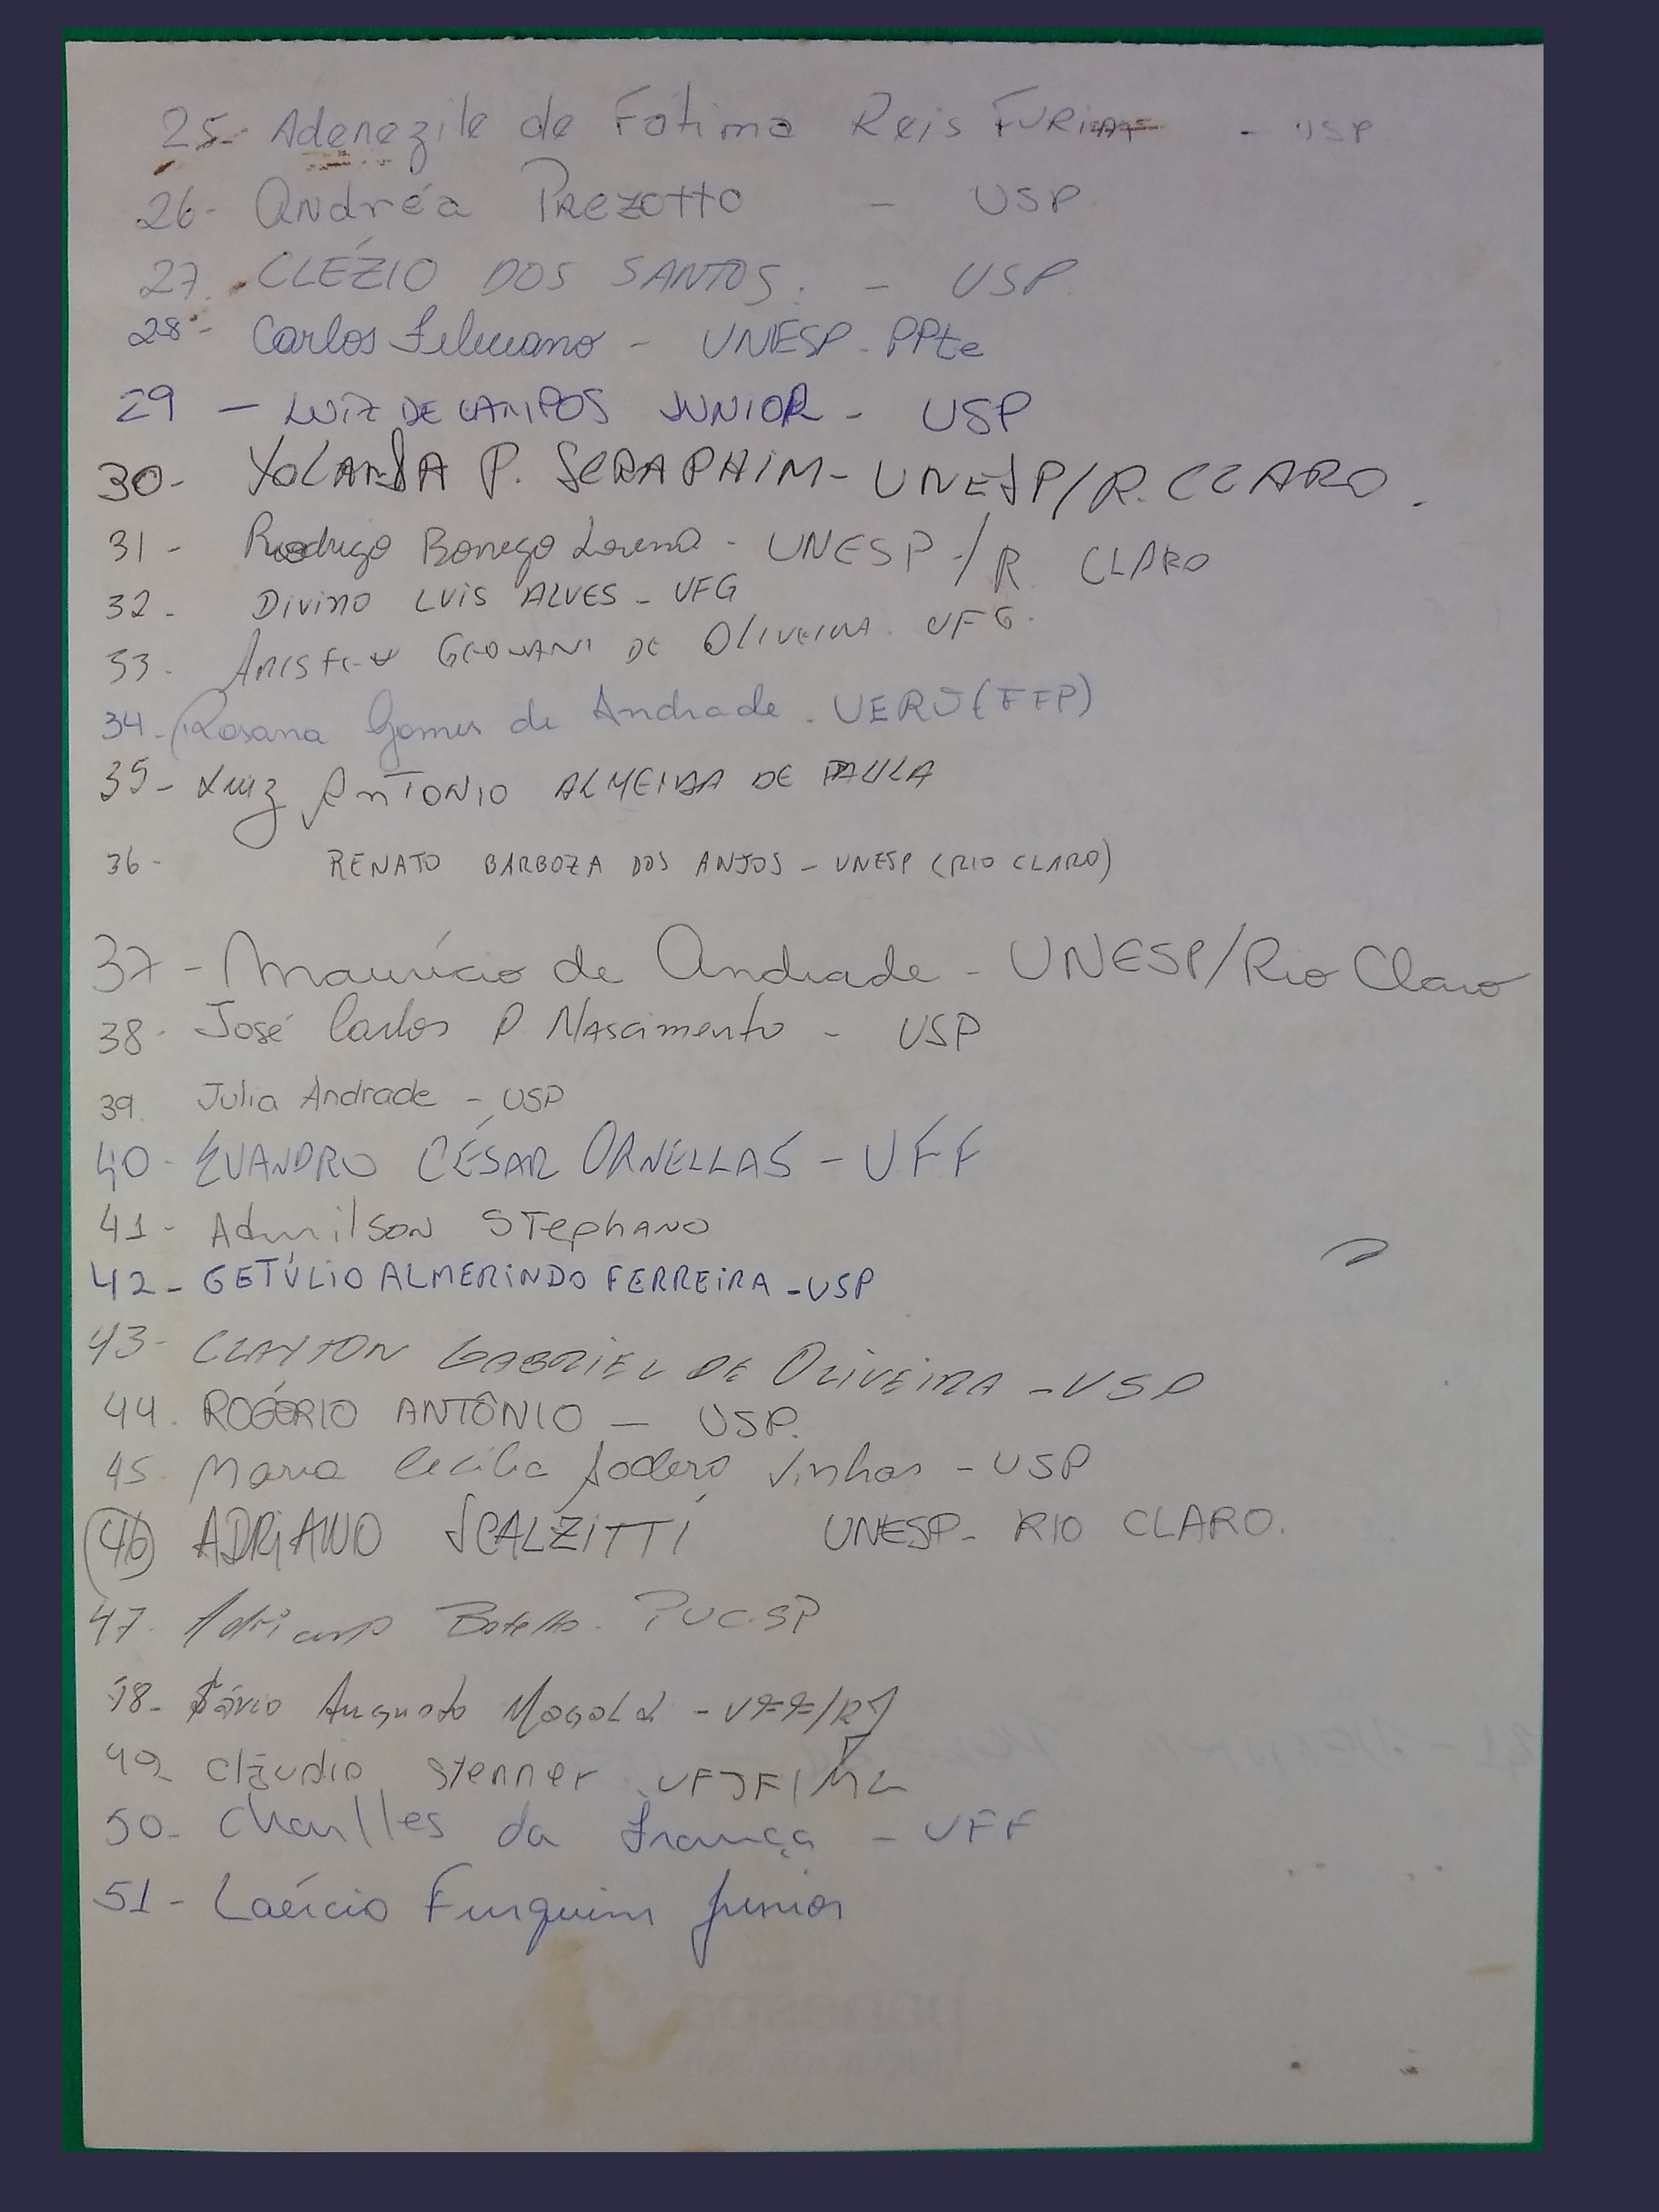 25- Adenezile de Fátima Reis - USP
26- Andréa Prezotto - USP
27. CLÉZIO DOS SANTOS. - USP
28- Carlos Feliciano - UNESP - PPte
29 - LUIZ DE CAMPOS JUNIOR - USP
30- YOLANDA P. SERAPHIM - UNESP/R. CLARO.
31 - Rodrigo Borrego Lorena - UNESP -/R CLARO
32 - DIVINO LUIS ALVES - UFG
33. GEOVANI DE OLIVEIRA. UFG.
34- Rosana Gomes de Andrade. UERJ (FFP)
35- Luiz ANTONIO ALMEIDA DE PAULA
36- RENATO BARBOZA DOS ANJOS - UNESP (RIO CLARO)
37 - Maurício de Andrade - UNESP/Rio Claro
38- José Carlos P Nascimento - USP
39. Julia Andrade - USP
40- EVANDRO CÉSAR ORNELLAS - UFF
41- Admilson Stephano
42- GETÚLIO ALMERINDO FERREIRA - USP
43- CLAYTON GABRIEL DE OLIVEIRA - USP
44. ROGÉRIO ANTÔNIO - USP.
45. Maria Cecília Vinhas - USP
46 ADRIANO SCALZITTI UNESP- RIO CLARO.
47. Botelho. PUC.SP
48- Sávio Augusto - UFF/RJ
49- Cláudio Stenner UFJF/MG
50- Charlles da França - UFF
51- Laércio Furquim Junior